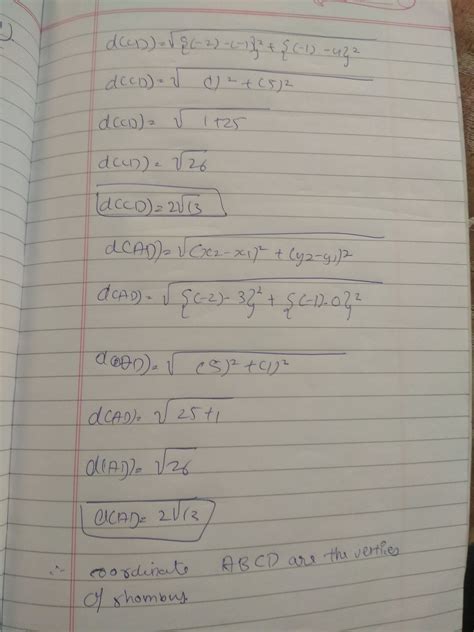 d(CD)=√{(-2)-(-1)}² + {(-1) -4}²
d(CD)=√ (1)² + (5)²
d(CD)= √ 1+25
d(CD)= √26
d(CD)= 2√13
d(AD)=√(x2-x1)² + (y2-y1)²
d(AD)=√{(-2)-3}² + {(-1)-0}²
d(AD)=√ (5)² + (1)²
d(AD)= √25+1
d(AD)= √26
d(AD)= 2√13
∴ coordinate ABCD are the verties
of rhombus